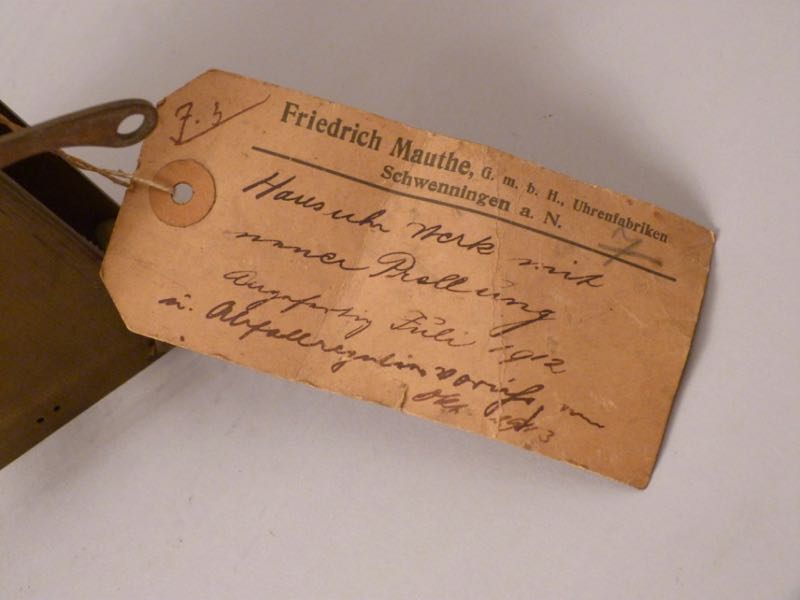 7.3
Friedrich Mauthe, G. m. b. H., Uhrenfabriken
Schwenningen a. N.
7
Hausuhr Werk mit
Prellung
Angefertig Juli 1912
u. Abfallregulier
Okt. 1913